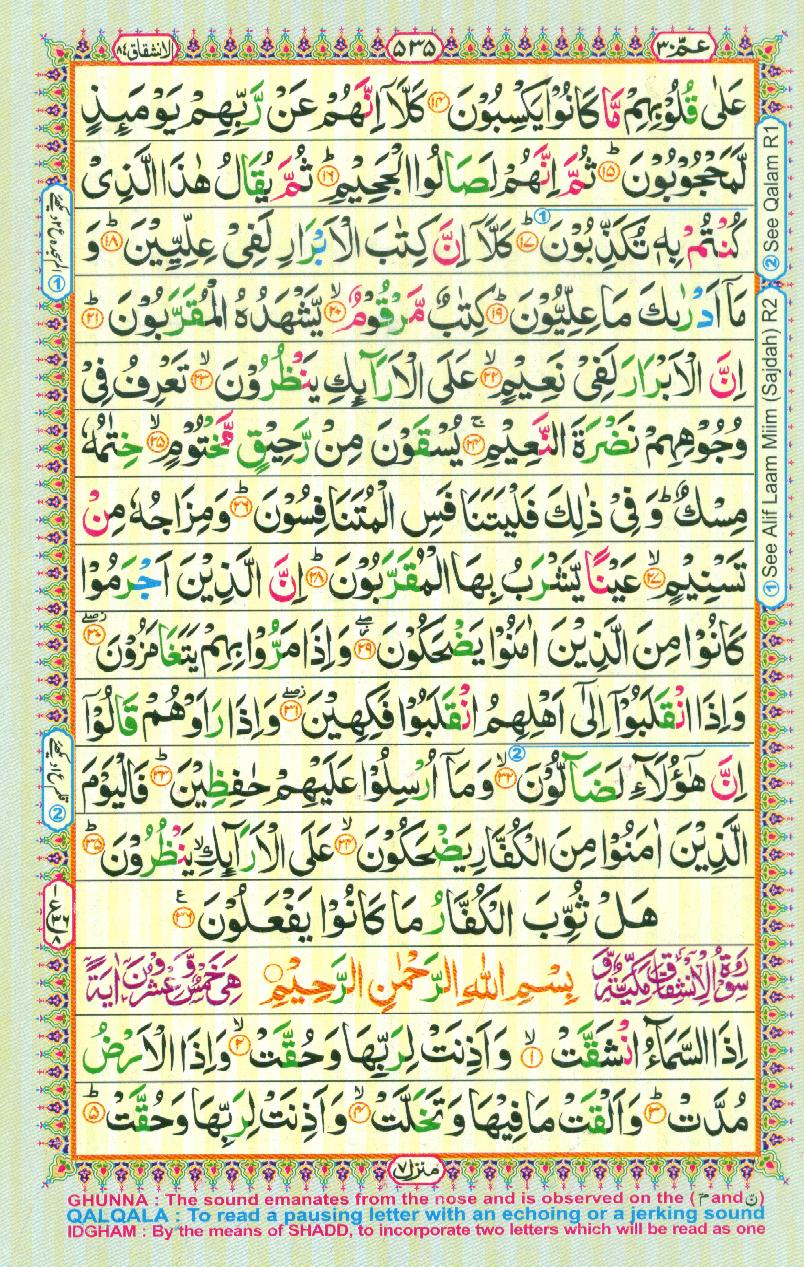 الانشقاق ٨٤
٥٣٥
عمّ ٣٠
عَلٰى قُلُوْبِهِمْ مَّا كَانُوْا يَكْسِبُوْنَ ﴿۱۴﴾ كَلَّاۤ اِنَّهُمْ عَنْ رَّبِّهِمْ يَوْمَىِٕذٍ
لَّمَحْجُوْبُوْنَؕ ﴿۱۵﴾ ثُمَّ اِنَّهُمْ لَصَالُوا الْجَحِيْمِؕ ﴿۱۶﴾ ثُمَّ يُقَالُ هٰذَا الَّذِىْ
كُنْتُمْ بِهٖ تُكَذِّبُوْنَؕ ﴿۱۷﴾ كَلَّاۤ اِنَّ كِتٰبَ الْاَبْرَارِ لَفِىْ عِلِّيِّيْنَؕ ﴿۱۸﴾ وَ
مَاۤ اَدْرٰىكَ مَا عِلِّيُّوْنَؕ ﴿۱۹﴾ كِتٰبٌ مَّرْقُوْمٌۙ ﴿۲۰﴾ يَّشْهَدُهُ الْمُقَرَّبُوْنَؕ ﴿۲۱﴾
اِنَّ الْاَبْرَارَ لَفِىْ نَعِيْمٍۙ ﴿۲۲﴾ عَلَى الْاَرَآىِٕكِ يَنْظُرُوْنَۙ ﴿۲۳﴾ تَعْرِفُ فِىْ
وُجُوْهِهِمْ نَضْرَةَ النَّعِيْمِۚ ﴿۲۴﴾ يُسْقَوْنَ مِنْ رَّحِيْقٍ مَّخْتُوْمٍۙ ﴿۲۵﴾ خِتٰمُهٗ
مِسْكٌؕ وَ فِىْ ذٰلِكَ فَلْيَتَنَافَسِ الْمُتَنَافِسُوْنَؕ ﴿۲۶﴾ وَمِزَاجُهٗ مِنْ
تَسْنِيْمٍۙ ﴿۲۷﴾ عَيْنًا يَّشْرَبُ بِهَا الْمُقَرَّبُوْنَؕ ﴿۲۸﴾ اِنَّ الَّذِيْنَ اَجْرَمُوْا
كَانُوْا مِنَ الَّذِيْنَ اٰمَنُوْا يَضْحَكُوْنَۖ ﴿۲۹﴾ وَاِذَا مَرُّوْا بِهِمْ يَتَغَامَزُوْنَۖ ﴿۳۰﴾
وَاِذَا انْقَلَبُوْۤا اِلٰٓى اَهْلِهِمُ انْقَلَبُوْا فَكِهِيْنَۖ ﴿۳۱﴾ وَاِذَا رَاَوْهُمْ قَالُوْۤا
اِنَّ هٰٓؤُلَآءِ لَضَآلُّوْنَۙ ﴿۳۲﴾ وَمَاۤ اُرْسِلُوْا عَلَيْهِمْ حٰفِظِيْنَؕ ﴿۳۳﴾ فَالْيَوْمَ
الَّذِيْنَ اٰمَنُوْا مِنَ الْكُفَّارِ يَضْحَكُوْنَۙ ﴿۳۴﴾ عَلَى الْاَرَآىِٕكِۙ يَنْظُرُوْنَؕ ﴿۳۵﴾
هَلْ ثُوِّبَ الْكُفَّارُ مَا كَانُوْا يَفْعَلُوْنَ ﴿۳۶﴾
سُوْرَةُ الْاِنْشِقَاقِ مَكِّيَّةٌ وَّ بِسْمِ اللهِ الرَّحْمٰنِ الرَّحِيْمِ هِىَ خَمْسٌ وَّعِشْرُوْنَ اٰيَةً
اِذَا السَّمَآءُ انْشَقَّتْۙ ﴿۱﴾ وَاَذِنَتْ لِرَبِّهَا وَحُقَّتْۙ ﴿۲﴾ وَاِذَا الْاَرْضُ
مُدَّتْؕ ﴿۳﴾ وَاَلْقَتْ مَا فِيْهَا وَتَخَلَّتْۙ ﴿۴﴾ وَاَذِنَتْ لِرَبِّهَا وَحُقَّتْؕ ﴿۵﴾
منزل ٧
② See Qalam R1
① See Alif Laam Miim (Sajdah) R2
GHUNNA : The sound emanates from the nose and is observed on the (مّ and نّ)
QALQALA : To read a pausing letter with an echoing or a jerking sound
IDGHAM : By the means of SHADD, to incorporate two letters which will be read as one